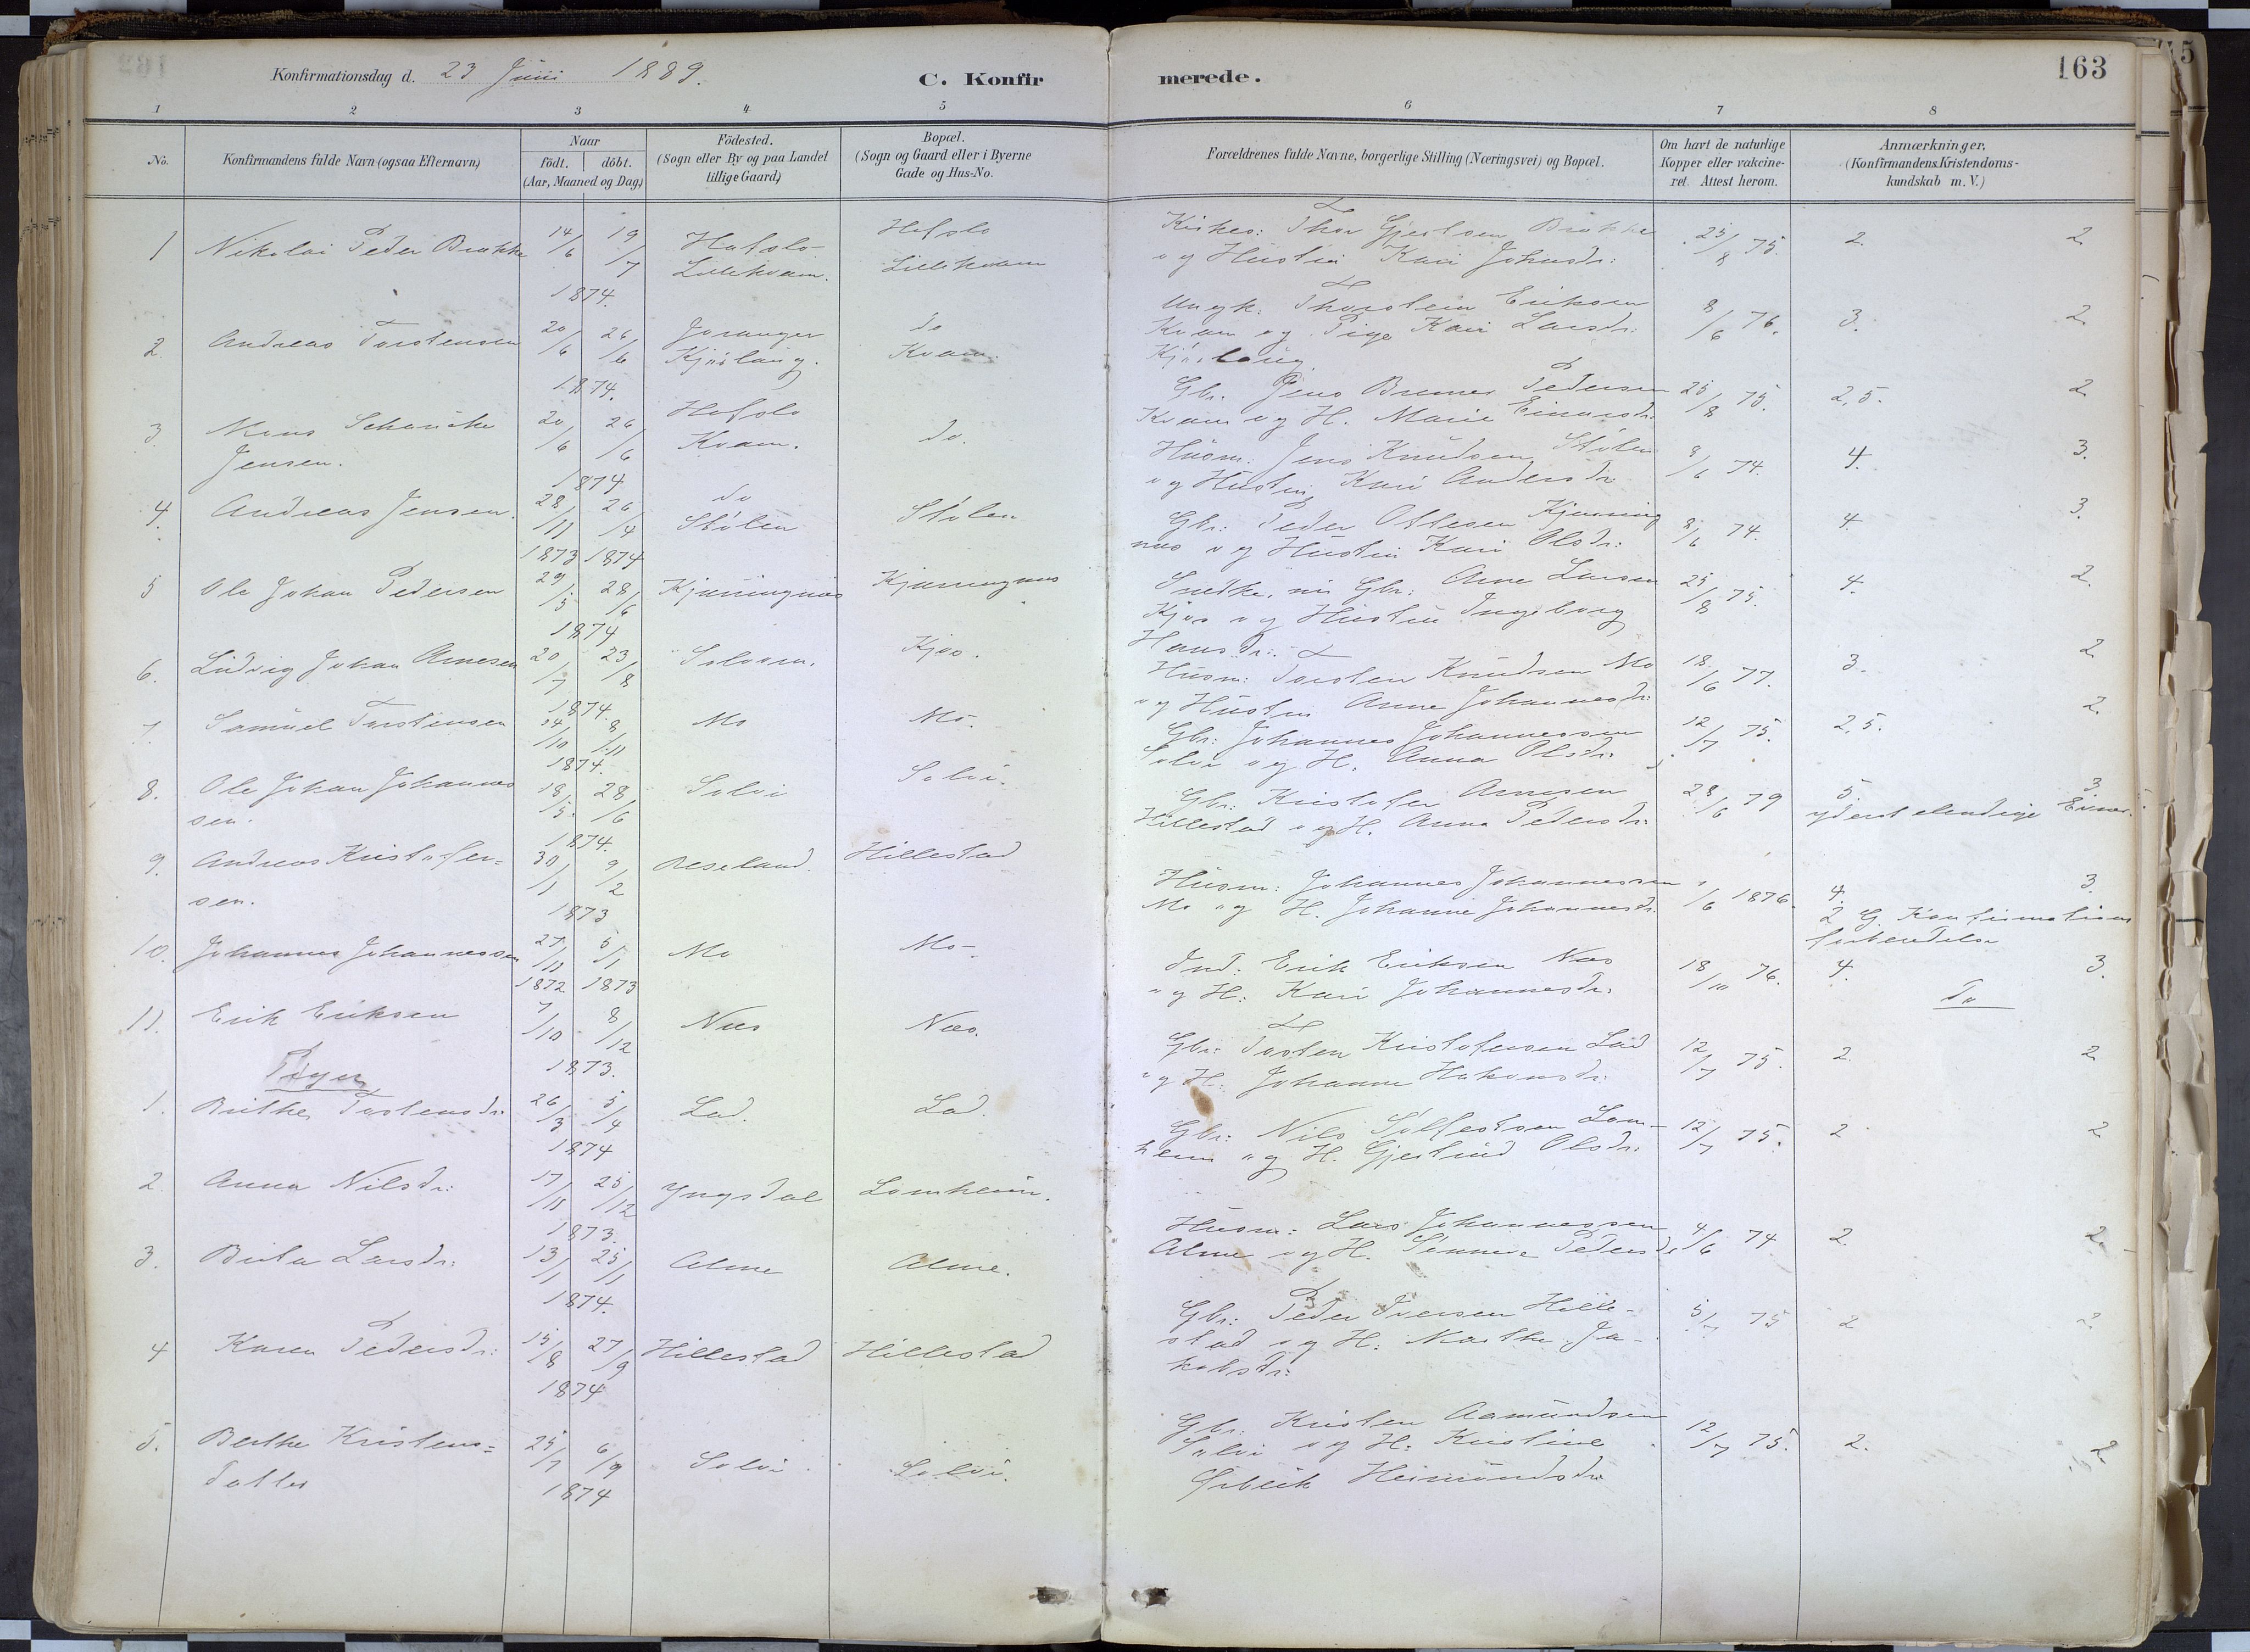 Konfirmationsdag d. 23 Juni 1889.
C. Konfirmerede.
163
1 2 3 4 5 6 7 8
No.
Konfirmandens fulde Navn (ogsaa Efternavn)
Naar
födt. döbt.
(Aar, Maaned og Dag)
Födested.
(Sogn eller By og paa Landet
tillige Gaard)
Bopæl.
(Sogn og Gaard eller i Byerne
Gade og Hus-No.
Forældrenes fulde Navne, borgerlige Stilling (Næringsvei) og Bopæl.
Om havt de naturlige
Kopper eller vakcine-
ret. Attest herom.
Anmærkninger.
(Konfirmandens Kristendoms-
kundskab m. V.)
1 Nikolai Peder 14/6 19/7 1874. Hafslo Lillekvam. Hafslo Lillekvam
Thor Gjertsen
og Hustru Kari Johnsdr: 25/8 75. 2. 2.
2. Andreas Torstensen 20/6 26/6 1874. Joranger Kjørlaug. do Kvam.
Ungk: Thorstein Eriksen
Kvam og Pige Kari Larsdr:
Kjørlaug 8/6 76. 3. 2.
3. Mons Schanche
Jensen. 20/6 26/6 1874 Hafslo Kvam. do.
Gbr. Jens Pedersen
Kvam og H. Marie Einarsdr. 25/8 75. 2,5. 2
4. Andreas Jensen. 28/11 26/4 1873 1874 do Stølen Stølen
Husm: Jens Knudsen Stølen
og Hustru Kari Andersdr. 8/6 74. 4. 3.
5 Ole Johan Pedersen 29/5 28/6 1874 Kjærringnæs Kjærringnæs
Gbr: Peder Ottesen Kjærring
næs og Hustru Kari Olsdr: 8/6 74. 4. 3.
6. Ludvig Johan Arnesen 20/7 23/8 1874. Solvorn. Kjos.
Snedker, nu Gbr: Arne Larsen
Kjos og Hustru Ingeborg
Hansdr: 25/8 75. 4. 2.
7. Samuel Torstensen 24/10 8/11 1874. Mo Mo.
Husm: Torsten Knudsen Mo
og Hustru Anne Johannesdr: 18/6 77. 3. 2
8. Ole Johan Johannes
sen. 18/5 28/6 1874. Solvi Solvi.
Gbr: Johannes Johannessen
Solvi og H. Anna Olsdr. 12/7 75. 2,5. 2.
9. Andreas Kristofer=
sen. 30/1 9/2 1873 Aeseland. Hillestad
Gbr: Kristofer Arnesen
Hillestad og H. Anna Pedersdr: 28/6 79 5. 3.
yderst elendige Evner.
10. Johannes Johannessen 27/11 5/1 1872 1873 Mo Mo.
Husm: Johannes Johannessen
Mo og H. Johanne Johannesdr. 1/6 1876. 4. 3.
2 G Konfirmations
forberedelse
11. Erik Eriksen 7/10 8/12 1873. Næs Næs.
Ind: Erik Eriksen Næs
og H. Kari Johannesdr: 18/10 76. 4. 3.
Do
Piger
1. Brithe Torstensdr: 26/3 5/4 1874 Lad. Lad.
Gbr: Torsten Kristofersen Lad
og H. Johanne Hakonsdr: 12/7 75. 2. 2
2 Anna Nilsdr: 17/11 25/12 1873. Yngsdal Lomheim.
Gbr: Nils Sølfestsen Lom-
heim og H. Gjertrud Olsdr: 12/7 75. 2 2
3. Brita Larsdr: 13/1 25/1 1874. Alme Alme.
Husm: Lars Johannessen
Alme og H. Sønneve Pedersdr 4/6 74 2. 2.
4 Karen Pedersdr: 15/8 27/9 1874 Hillestad Hillestad
Gbr: Peder Iversen Hille-
stad og H. Marthe Ja-
kobsdr: 5/7 75 2 2
5. Berthe Kristens=
Datter 25/7 6/9 1874 Solvi Solvi.
Gbr. Kristen Aamundsen
Solvi og H. Kristine
Heimundsdr. 12/7 75. 2. 2